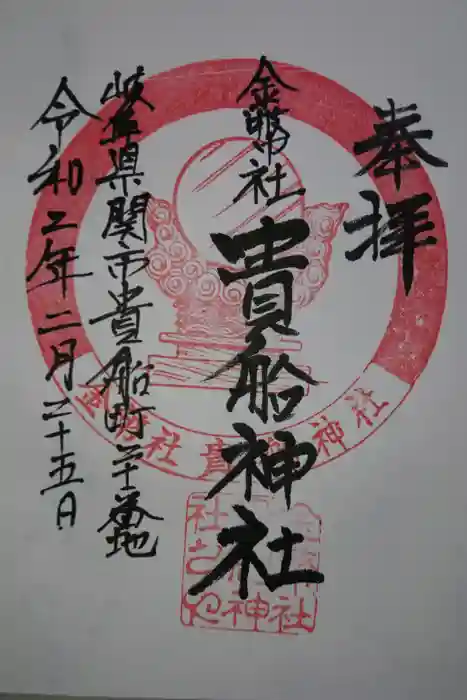 奉拝
金幣社
貴船神社
岐阜県関市貴船町二十番地
令和二年二月二十五日
金幣社 貴船神社